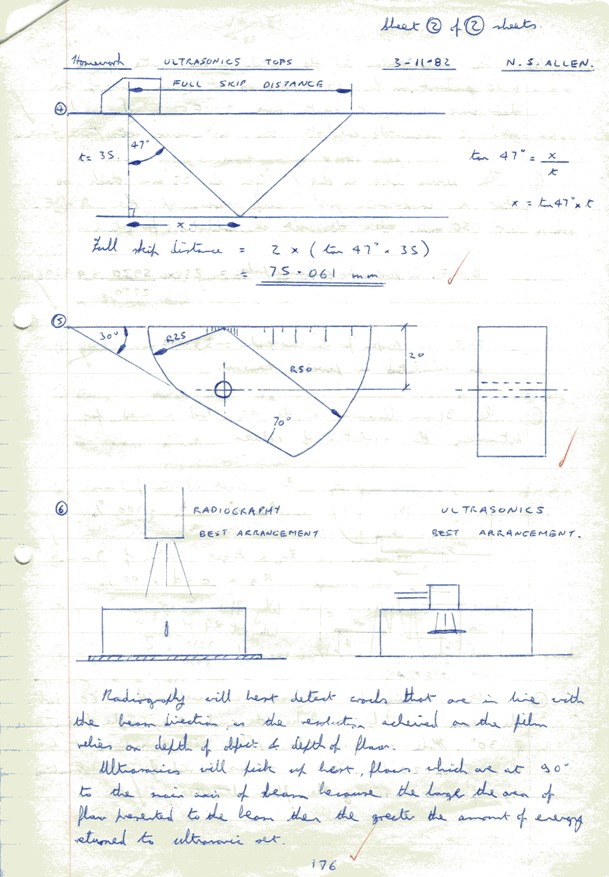 Sheet 2 of 2 sheets.
Homework ULTRASONICS TOPS 3-11-82 N. S. ALLEN.
FULL SKIP DISTANCE
4
47°
t = 35.
tan 47° = x/t
x = tan 47° × t
x
Full skip distance = 2 × ( tan 47° · 35)
= 75·061 mm
5
30°
R25
R50
20
70°
6
RADIOGRAPHY
BEST ARRANGEMENT
ULTRASONICS
BEST ARRANGEMENT.
Radiography will best detect cracks that are in line with
the beam direction, as the resolution achieved on the film
relies on depth of object & depth of flaw.
Ultrasonics will pick up best, flaws which are at 90°
to the main axis of beam because the larger the area of
flaw presented to the beam then the greater the amount of energy
returned to ultrasonic set.
176